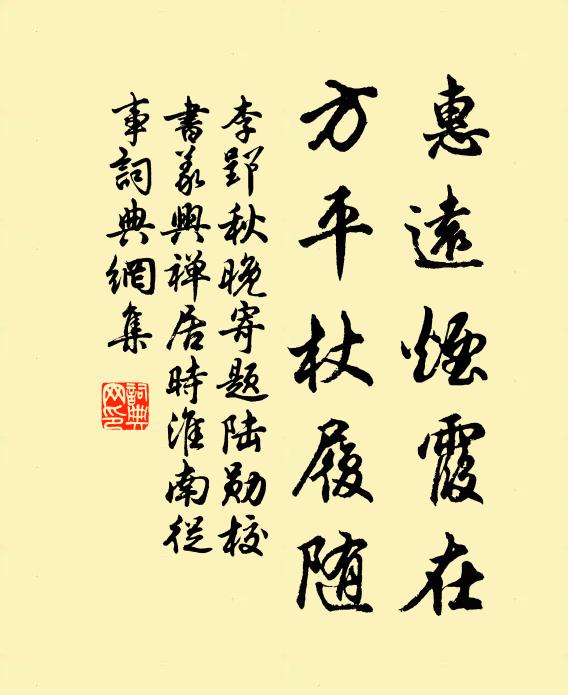 惠遠煙霞在
方平杖履随
李郢秋晚寄題陆勛校
書義興禅居時淮南從
事詞典網集
詞典网印